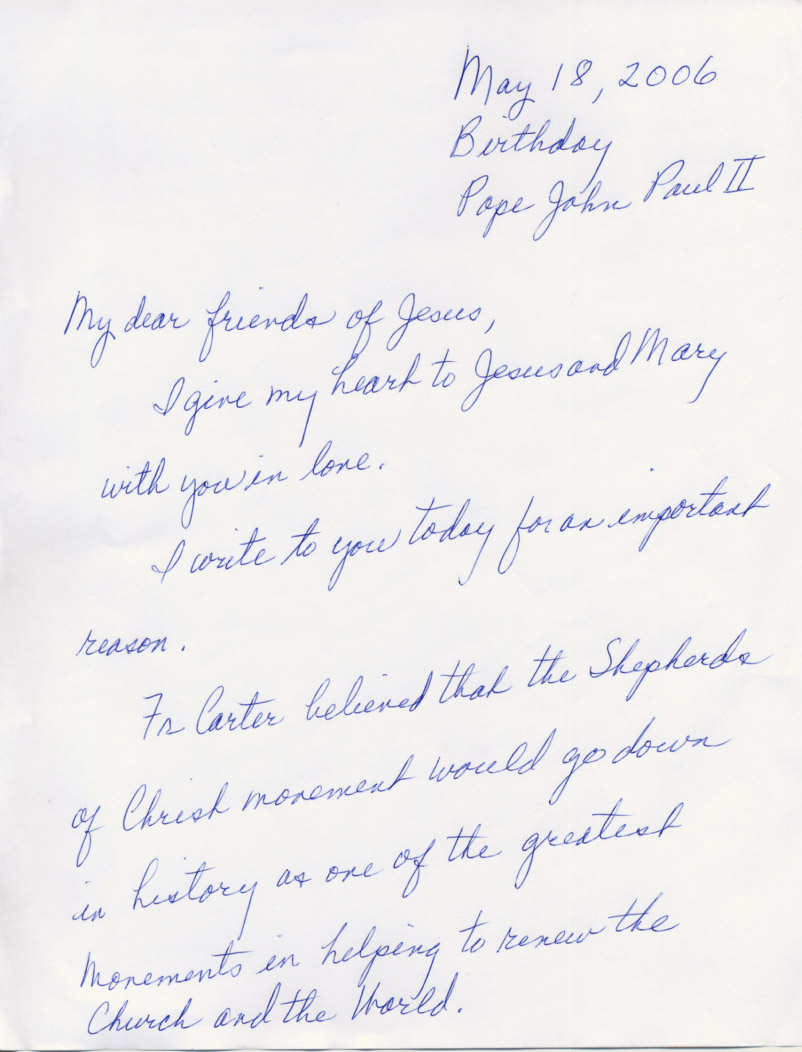 May 18, 2006
Birthday
Pope John Paul II
My dear friends of Jesus,
I give my heart to Jesus and Mary
with you in love.
I write to you today for an important
reason.
Fr Carter believed that the Shepherds
of Christ movement would go down
in history as one of the greatest
Movements in helping to renew the
Church and the World.